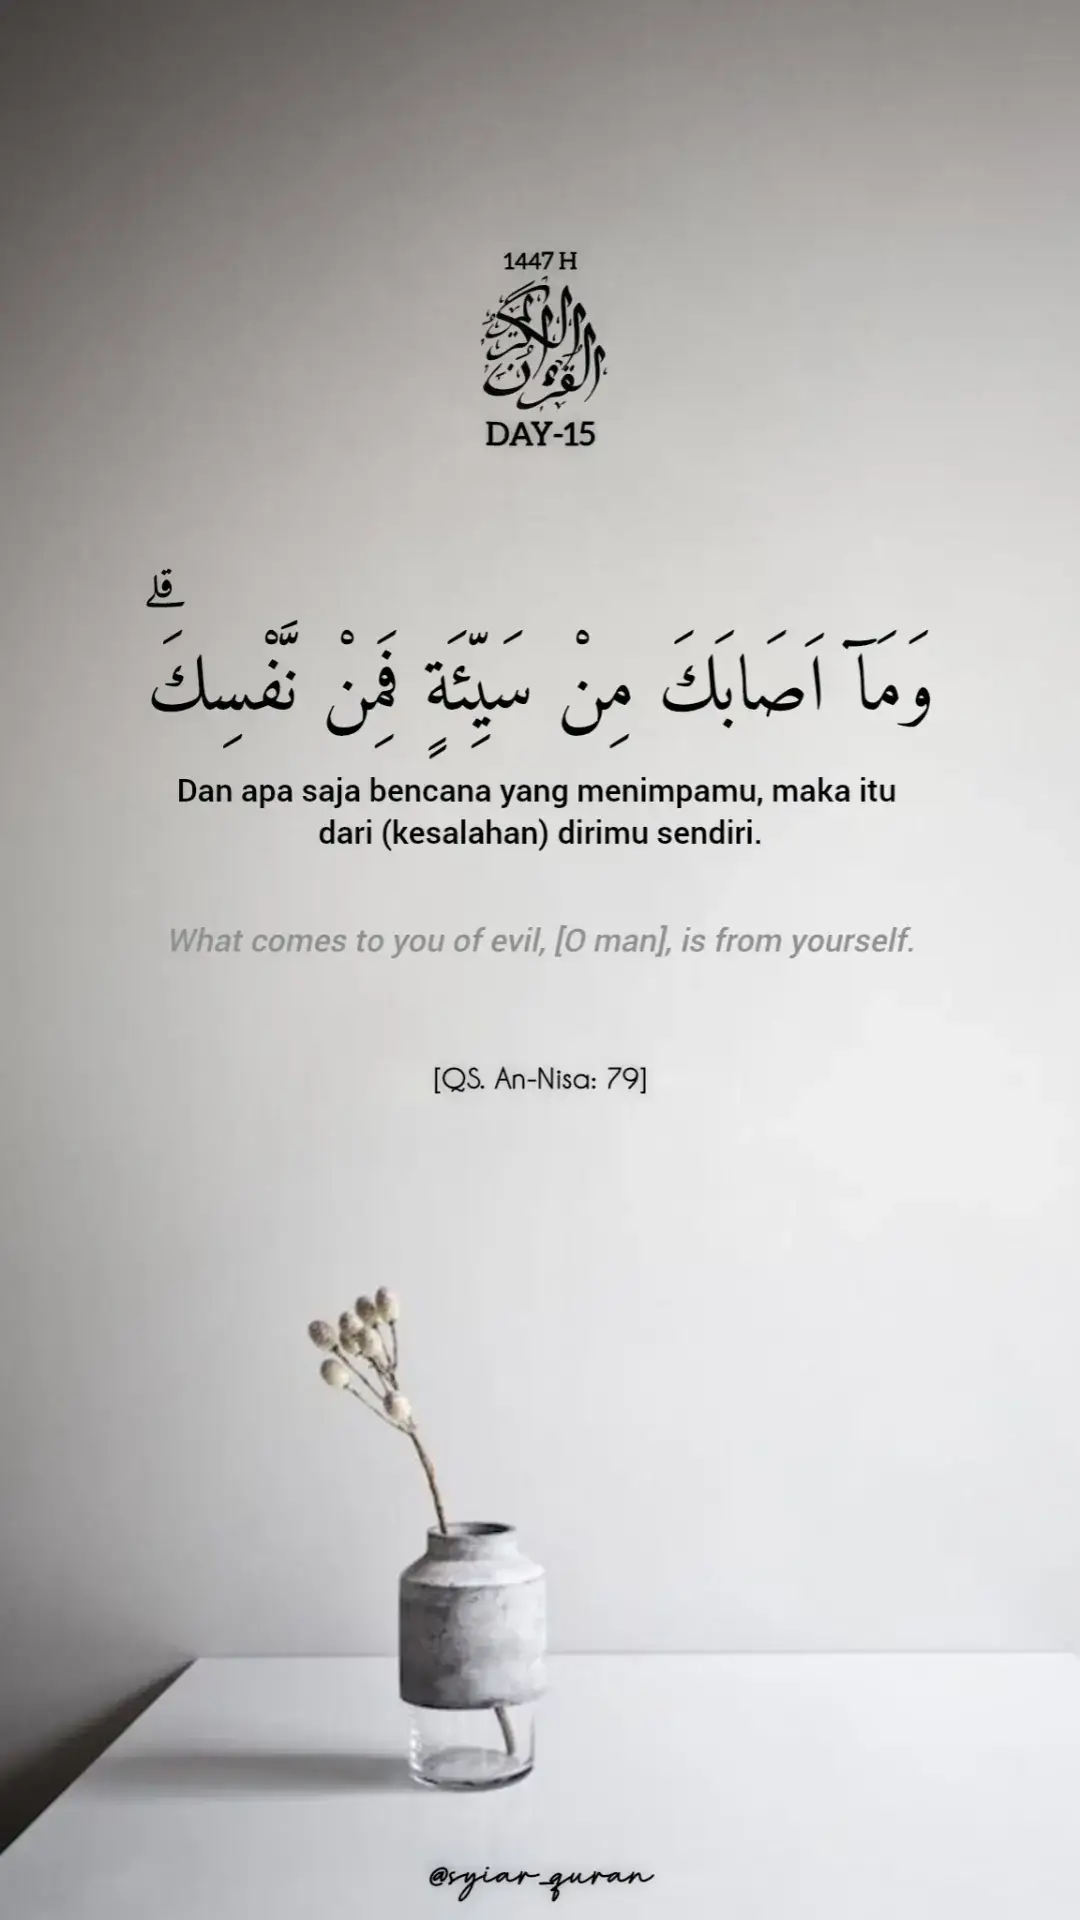 1447 H
القرآن الكريم
DAY-15
وَمَآ اَصَابَكَ مِنْ سَيِّئَةٍ فَمِنْ نَّفْسِكَ ۗ
Dan apa saja bencana yang menimpamu, maka itu
dari (kesalahan) dirimu sendiri.
What comes to you of evil, [O man], is from yourself.
[QS. An-Nisa: 79]
@syiar_quran